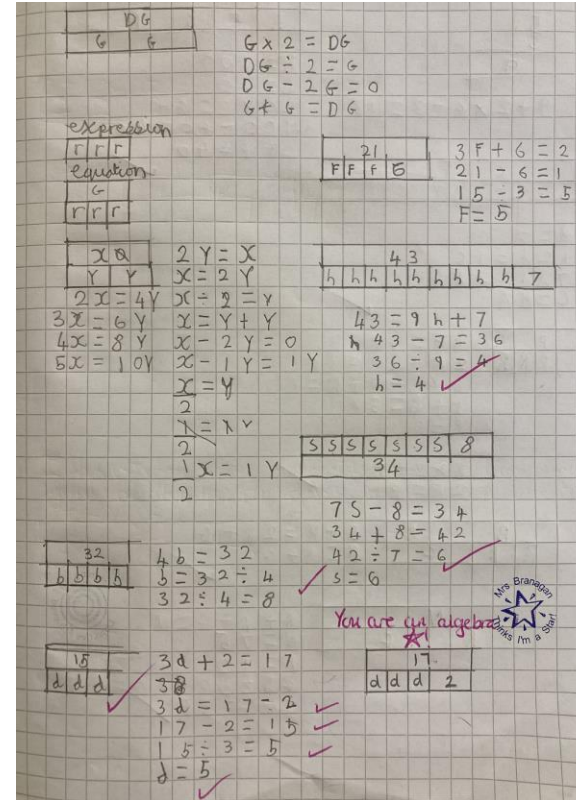 DG
G G
G x 2 = DG
DG ÷ 2 = G
DG - 2G = 0
G + G = DG
expression
r r r
equation
G
r r r
21
F F F 6
3F + 6 = 2
21 - 6 = 1
15 ÷ 3 = 5
F = 5
x
Y Y
2x = 4Y
3x = 6Y
4x = 8Y
5x = 10Y
2Y = X
x = 2Y
x ÷ 2 = Y
x = Y + Y
x - 2Y = 0
x - 1Y = 1Y
x/2 = Y
1/2 x = 1Y
43
h h h h h h h h h 7
43 = 9h + 7
h 43 - 7 = 36
36 ÷ 9 = 4
h = 4
s s s s s s s 8
34
7S - 8 = 34
34 + 8 = 42
42 ÷ 7 = 6
s = 6
32
b b b b
4b = 32
b = 32 ÷ 4
32 ÷ 4 = 8
You are an algebra
Mrs Branagan
thinks I'm a Star!
15
d d d
3d + 2 = 17
3d = 17 - 2
17 - 2 = 15
15 ÷ 3 = 5
d = 5
17
d d d 2